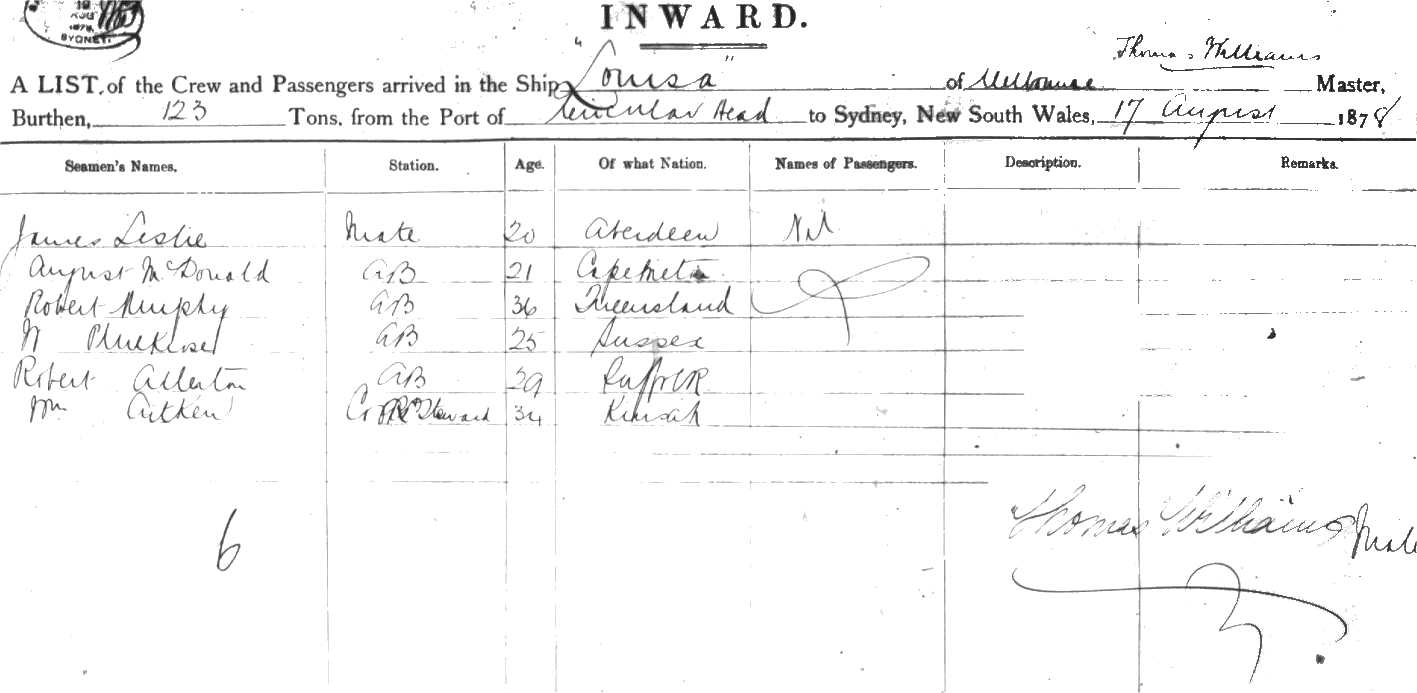 19
AUG
1878
SYDNEY.
INWARD.
Thomas Williams
A LIST, of the Crew and Passengers arrived in the Ship "Louisa" of Melbourne Master,
Burthen, 123 Tons, from the Port of Circular Head to Sydney, New South Wales, 17 August 1878
Seamen's Names. Station. Age. Of what Nation. Names of Passengers. Description. Remarks.
James Leslie Mate 20 Aberdeen Nil
August McDonald AB 21
Robert Murphy AB 36 Queensland
AB 25 Sussex
Robert Allerton AB 29 Suffolk
Wm Aitken Cook & Steward 34
6
Thomas Williams